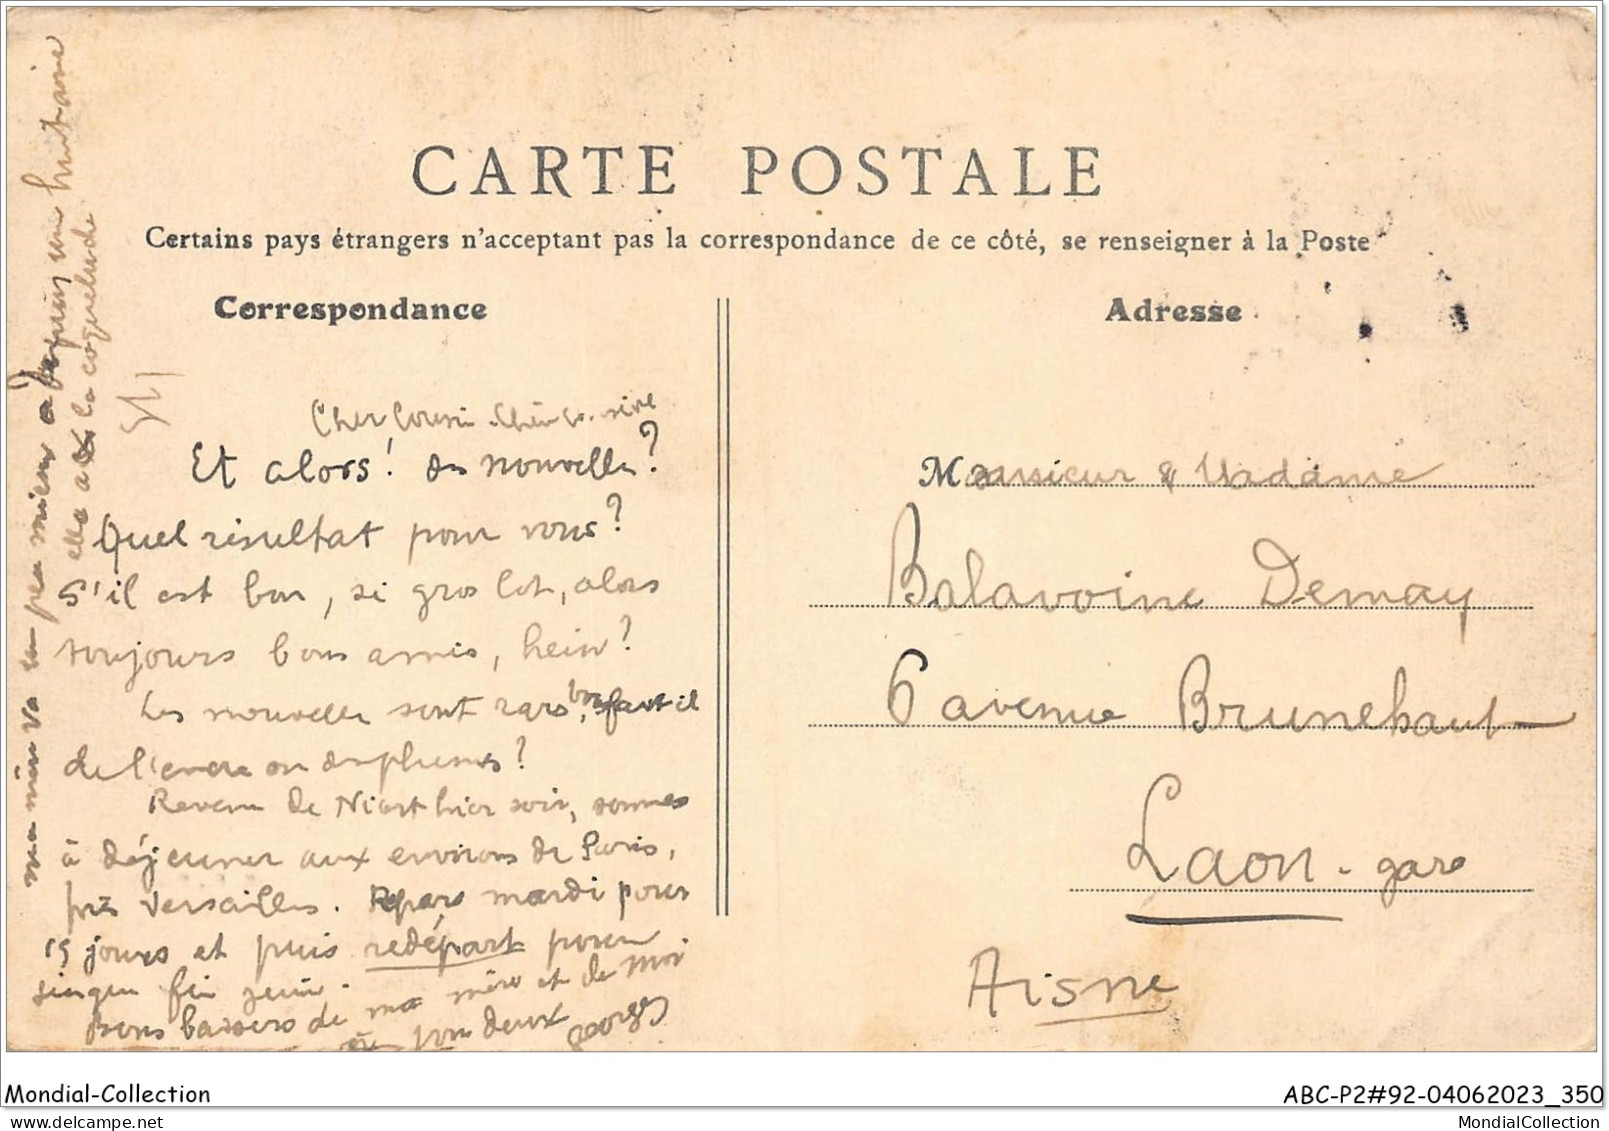 CARTE POSTALE
Certains pays étrangers n'acceptant pas la correspondance de ce côté, se renseigner à la Poste
Correspondance
Cher Cousin
Et alors! des nouvelles?
Quel résultat pour vous?
S'il est bon, si gros lot, alors
toujours bons amis, hein?
Les nouvelles sont rares, faut il
de l'encre ou des plumes?
Revenu de Niort hier soir, sommes
à déjeuner aux environs de Paris,
près Versailles. Repars mardi pour
15 jours et puis redépart pour
fin juin.
Bons baisers de ma mère et de moi
à tous deux Georges
ma mère va un peu mieux depuis une huitaine
elle a la coqueluche
Adresse
Monsieur & Madame
Balavoine Demay
6 avenue Brunehaut
Laon - gare
Aisne
Mondial-Collection
ABC-P2#92-04062023_350
www.delcampe.net
MondialCollection